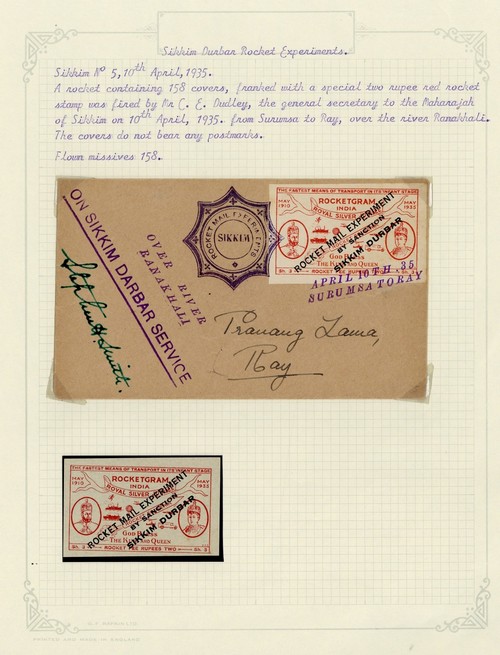 Sikkim Durbar Rocket Experiments.
Sikkim Nº 5, 10th April, 1935.
A rocket containing 158 covers, franked with a special two rupee red rocket
stamp was fired by Mr C. E. Dudley, the general secretary to the Maharajah
of Sikkim on 10th April, 1935. from Surumsa to Ray, over the river Ranakhali.
The covers do not bear any postmarks.
Flown missives 158.
ON SIKKIM DARBAR SERVICE
Stephen H. Smith.
OVER RIVER
RANAKHALI
ROCKET MAIL EXPERIMENTS
SIKKIM
THE FASTEST MEANS OF TRANSPORT IN ITS INFANT STAGE
MAY 1910
ROCKETGRAM
INDIA
MAY 1935
ROYAL SILVER
ROCKET MAIL EXPERIMENT
BY SANCTION
SIKKIM DURBAR
GOD BLESS
THE KING AND QUEEN
ROCKET FEE RUPEES TWO
APRIL 10TH 35
SURUMSA TO RAY
Pranang Lama,
Ray
THE FASTEST MEANS OF TRANSPORT IN ITS INFANT STAGE
MAY 1910
ROCKETGRAM
INDIA
MAY 1935
ROYAL SILVER
ROCKET MAIL EXPERIMENT
BY SANCTION
SIKKIM DURBAR
GOD BLESS
THE KING AND QUEEN
Sh. 3
ROCKET FEE RUPEES TWO
Sh. 3
PRINTED AND MADE IN ENGLAND